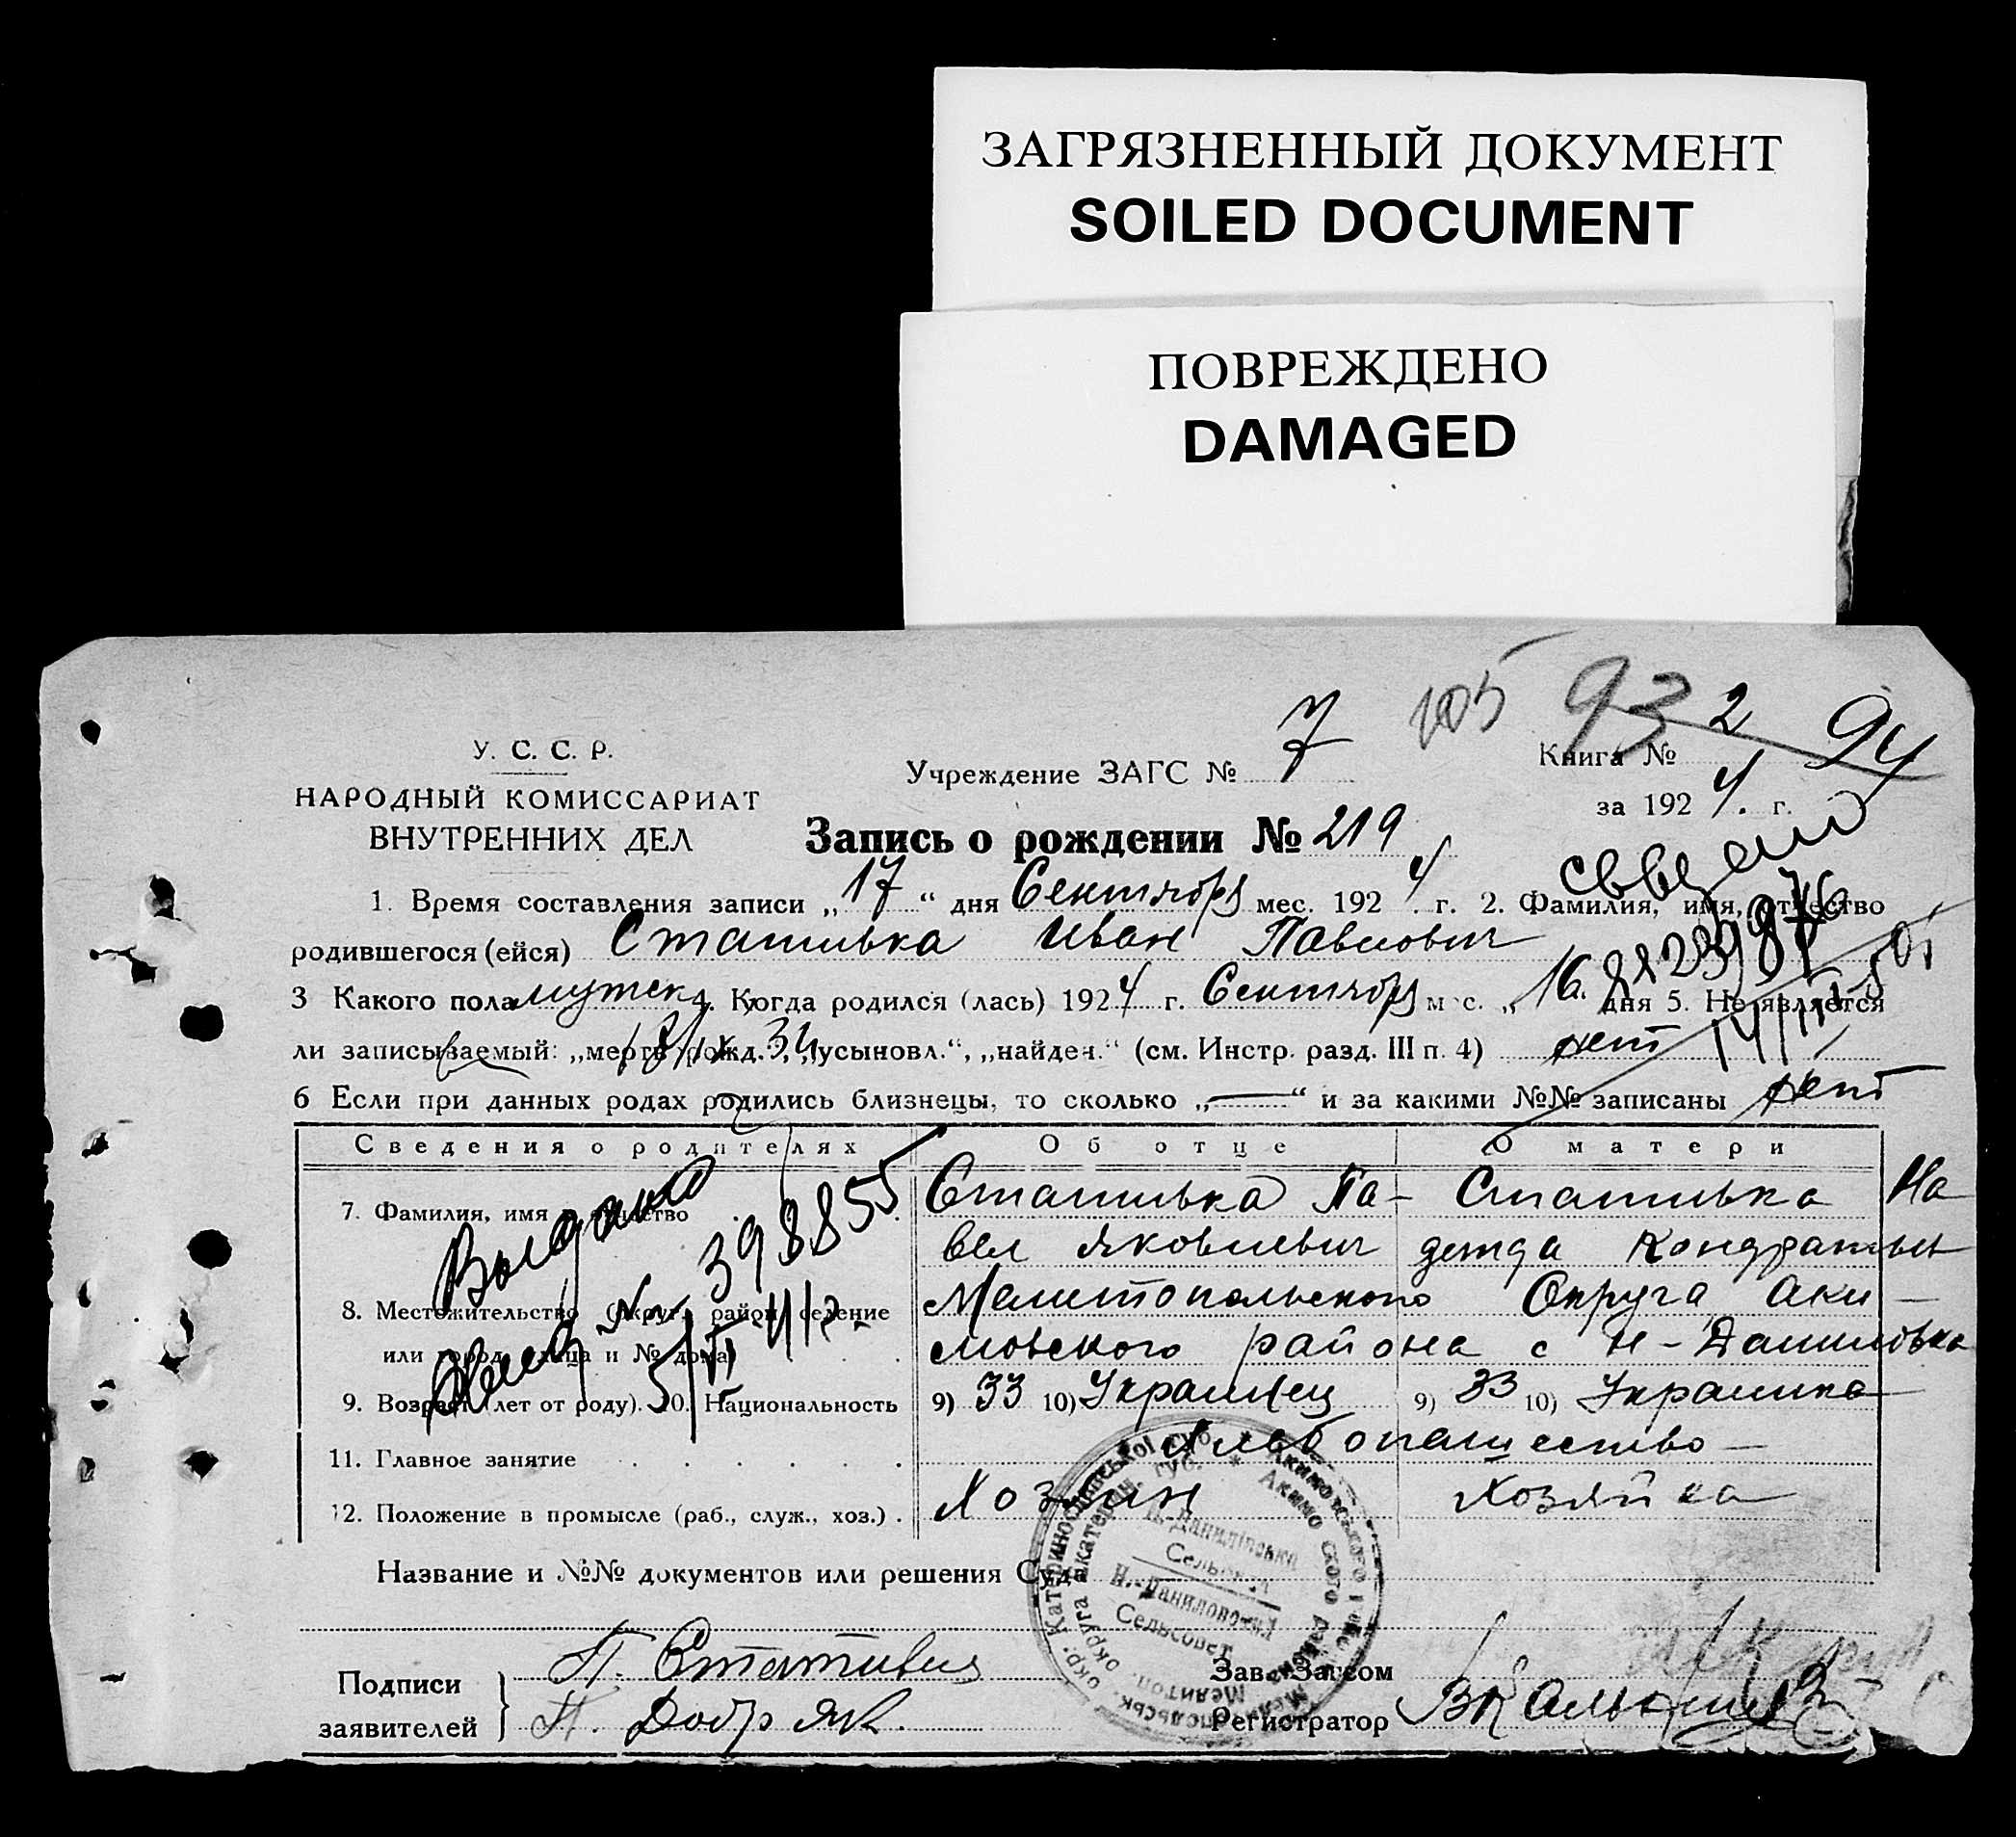 ЗАГРЯЗНЕННЫЙ ДОКУМЕНТ
SOILED DOCUMENT
ПОВРЕЖДЕНО
DAMAGED
105 93 94
У. С. С. Р.
НАРОДНЫЙ КОМИССАРИАТ
ВНУТРЕННИХ ДЕЛ
Учреждение ЗАГС № 7
Книга № 2
за 1924 г.
Запись о рождении № 219
1. Время составления записи „17“ дня Сентября мес. 1924 г. 2. Фамилия, имя, отчество
родившегося (ейся) Стативка Иван Павлович
3 Какого пола мужск. 4. Когда родился (лась) 1924 г. Сентября мес. „16 дня 5. Не является
ли записываемый: „мертворожд.“, „усыновл.“, „найден.“ (см. Инстр. разд. III п. 4) нет
6 Если при данных родах родились близнецы, то сколько „—“ и за какими №№ записаны нет
Сведения о родителях Об отце О матери
7. Фамилия, имя и отчество Стативка Па- Стативка На
вел Яковлевич дежда Кондратьев
8. Местожительство (округ, район, селение Мелитопольского Округа Аки-
или город, улица и № дома) мовского района с Н-Даниловка
9. Возраст (лет от роду). 10. Национальность 9) 33 10) Украинец 9) 33 10) Украинка
11. Главное занятие Хлебопашество
12. Положение в промысле (раб., служ., хоз.) Хозяин Хозяйка
Выдано
№ 398855
Название и №№ документов или решения Суда
Н.-Даниловский
Сельсовет
Подписи
заявителей
П. Стативка
П. Добряк
Зав. Загсом
Регистратор